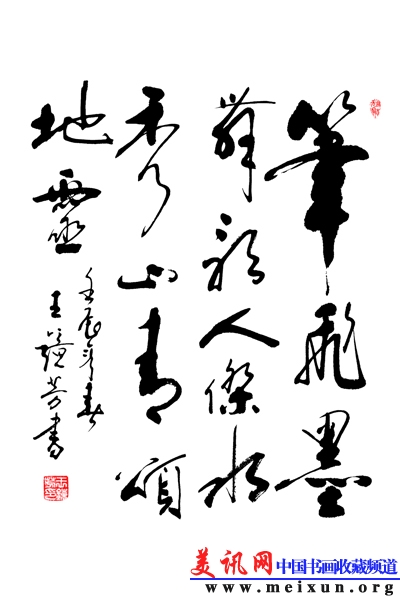 筆飛墨
舞詠人傑水
秀山青頌
地靈
壬辰年春
王鎰芳書
美讯网 中国书画收藏频道
www.meixun.org